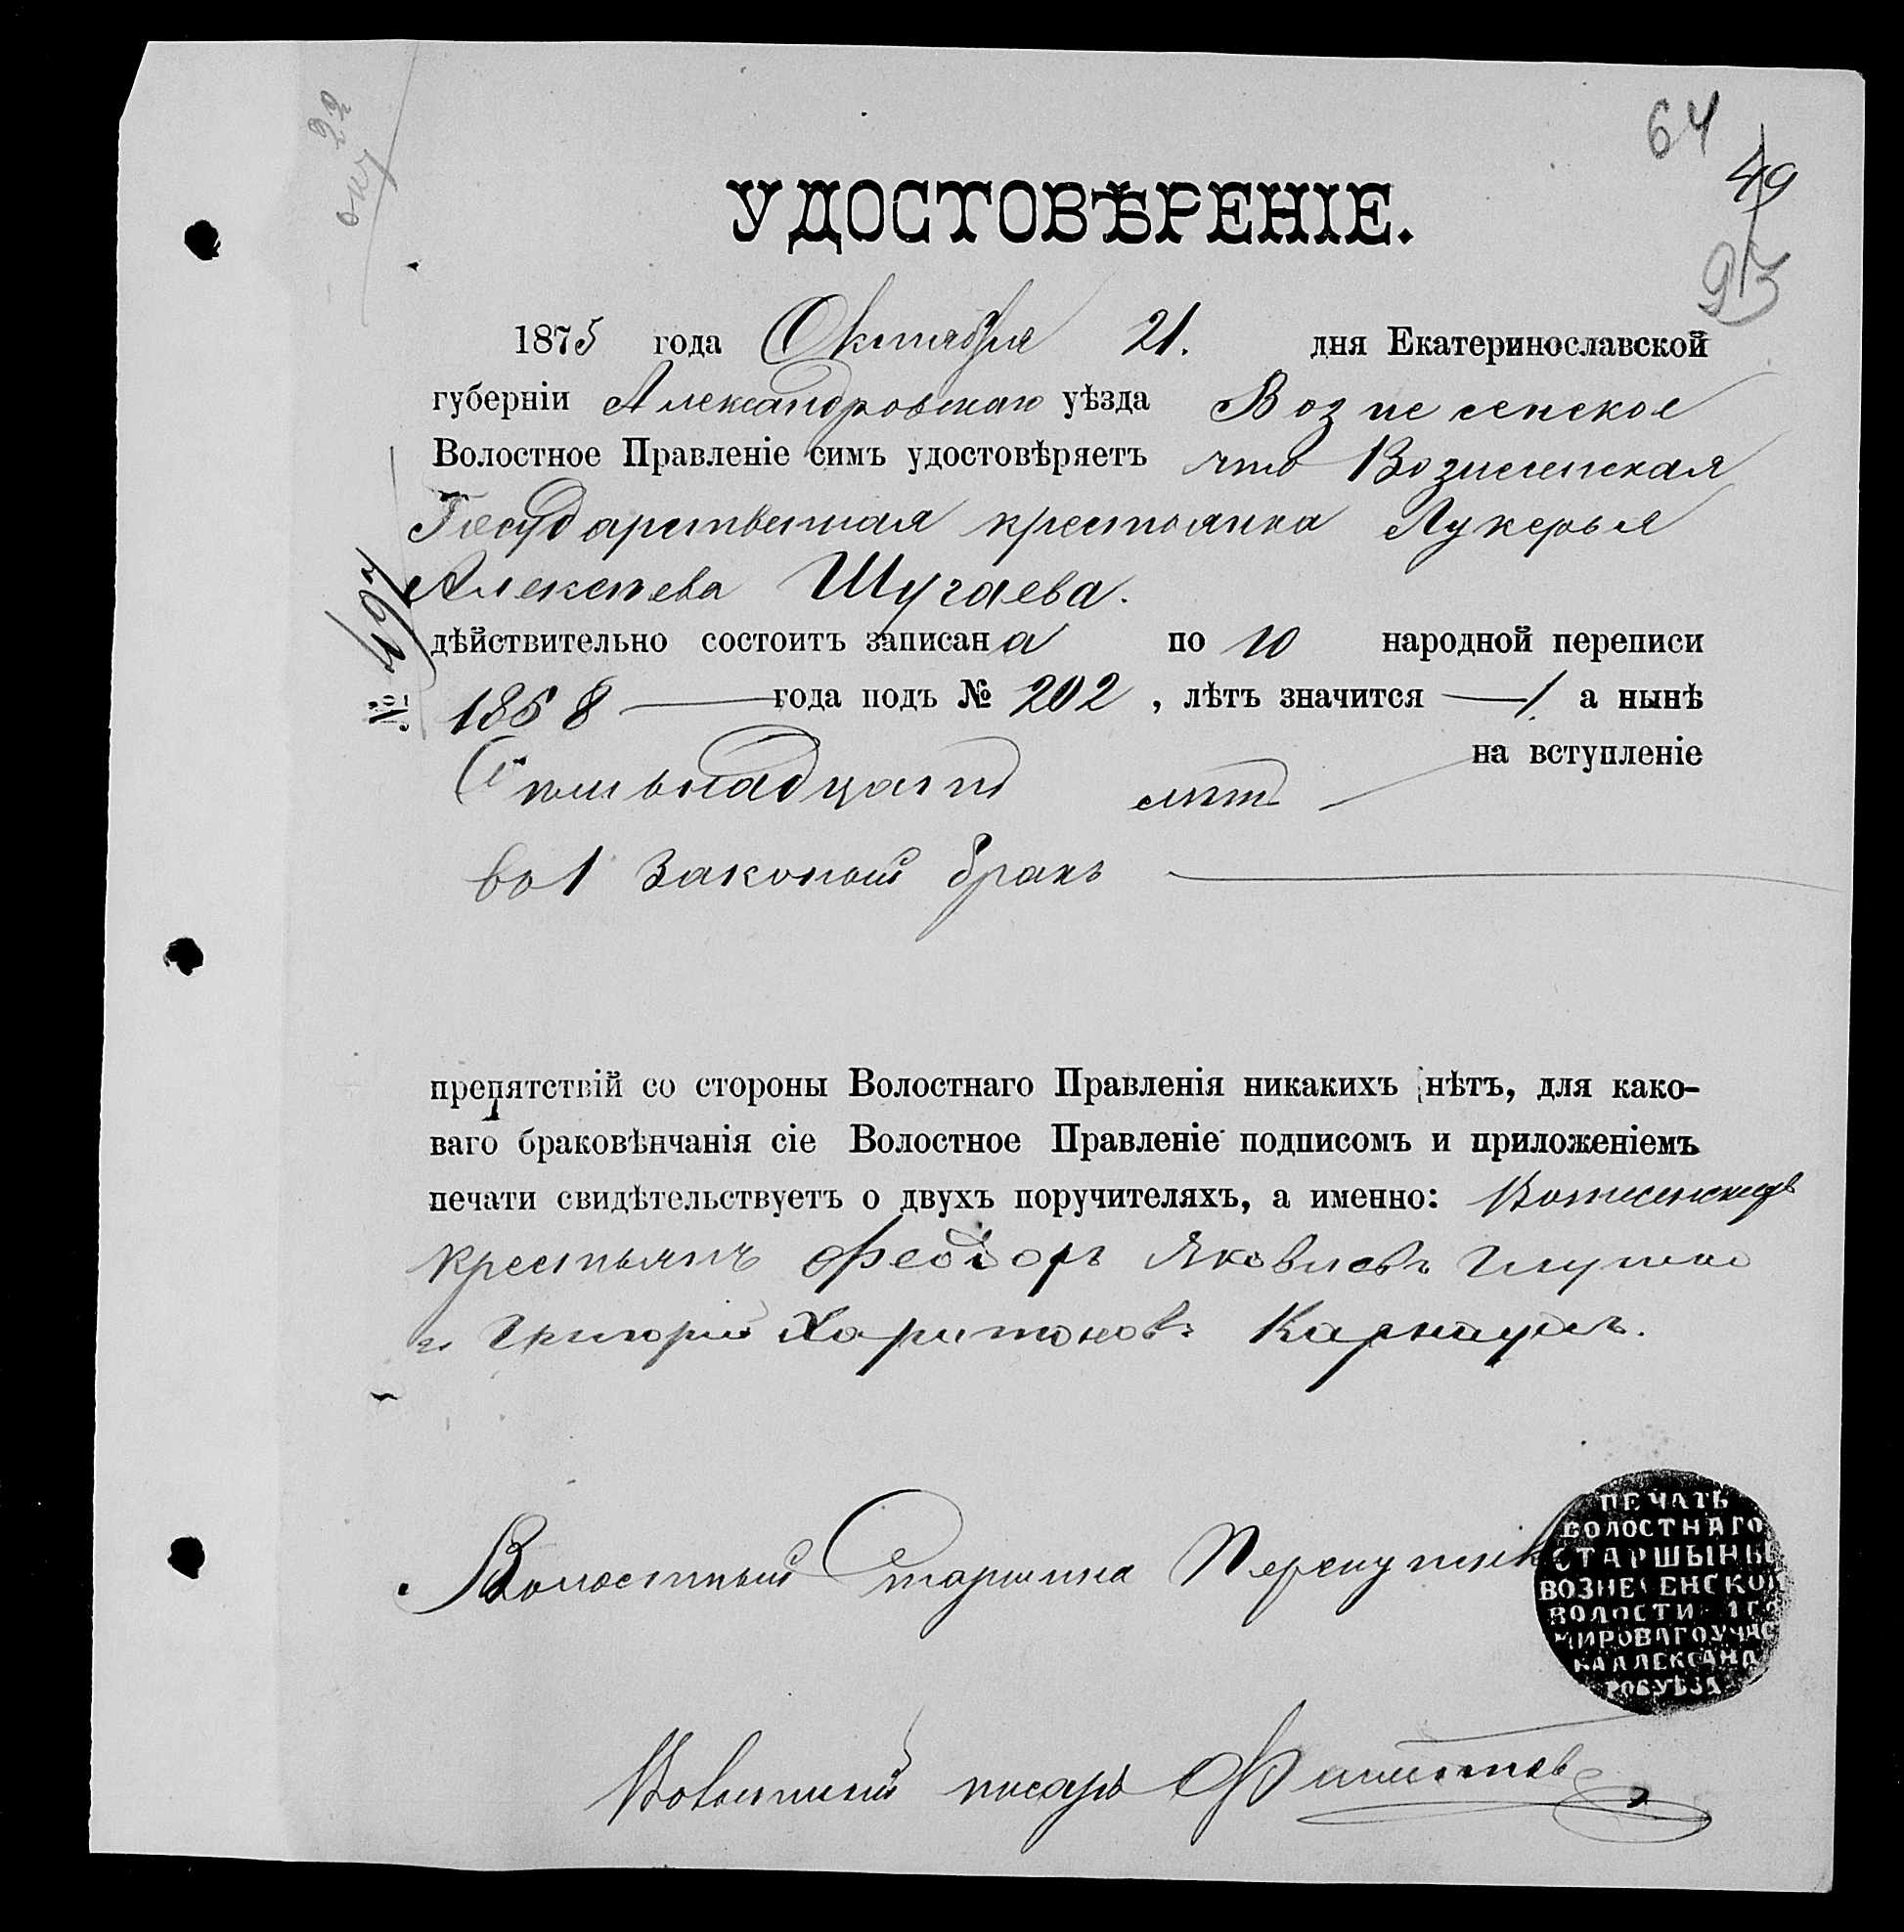 64
49
93
окт 22
УДОСТОВѢРЕНІЕ.
1875 года Октября 21. дня Екатеринославской
губерніи Александровскаго уѣзда Вознесенское
Волостное Правленіе симъ удостовѣряетъ что Вознесенская
Государственная крестьянка Лукерья
Алексѣева Шугаева.
дѣйствительно состоитъ записана по 10 народной переписи
1858 года подъ № 202, лѣтъ значится — 1. а нынѣ
на вступленіе
Семьнадцать лѣтъ
во 1 Законый бракъ
препятствій со стороны Волостнаго Правленія никакихъ нѣтъ, для како-
ваго браковѣнчанія сіе Волостное Правленіе подписомъ и приложеніемъ
печати свидѣтельствуетъ о двухъ поручителяхъ, а именно:
крестьянъ Феодоръ Яковлевъ
и Григорій Харитоновъ Карнаухъ.
Волостный Старшина
ПЕЧАТЬ
ВОЛОСТНАГО
СТАРШЫНЫ
ВОЗНЕСЕНСКОЙ
ВОЛОСТИ 1ГО
МИРОВАГО УЧАС
КА АЛЕКСАНД
РОВ УѢЗД
Волостный писарь
№